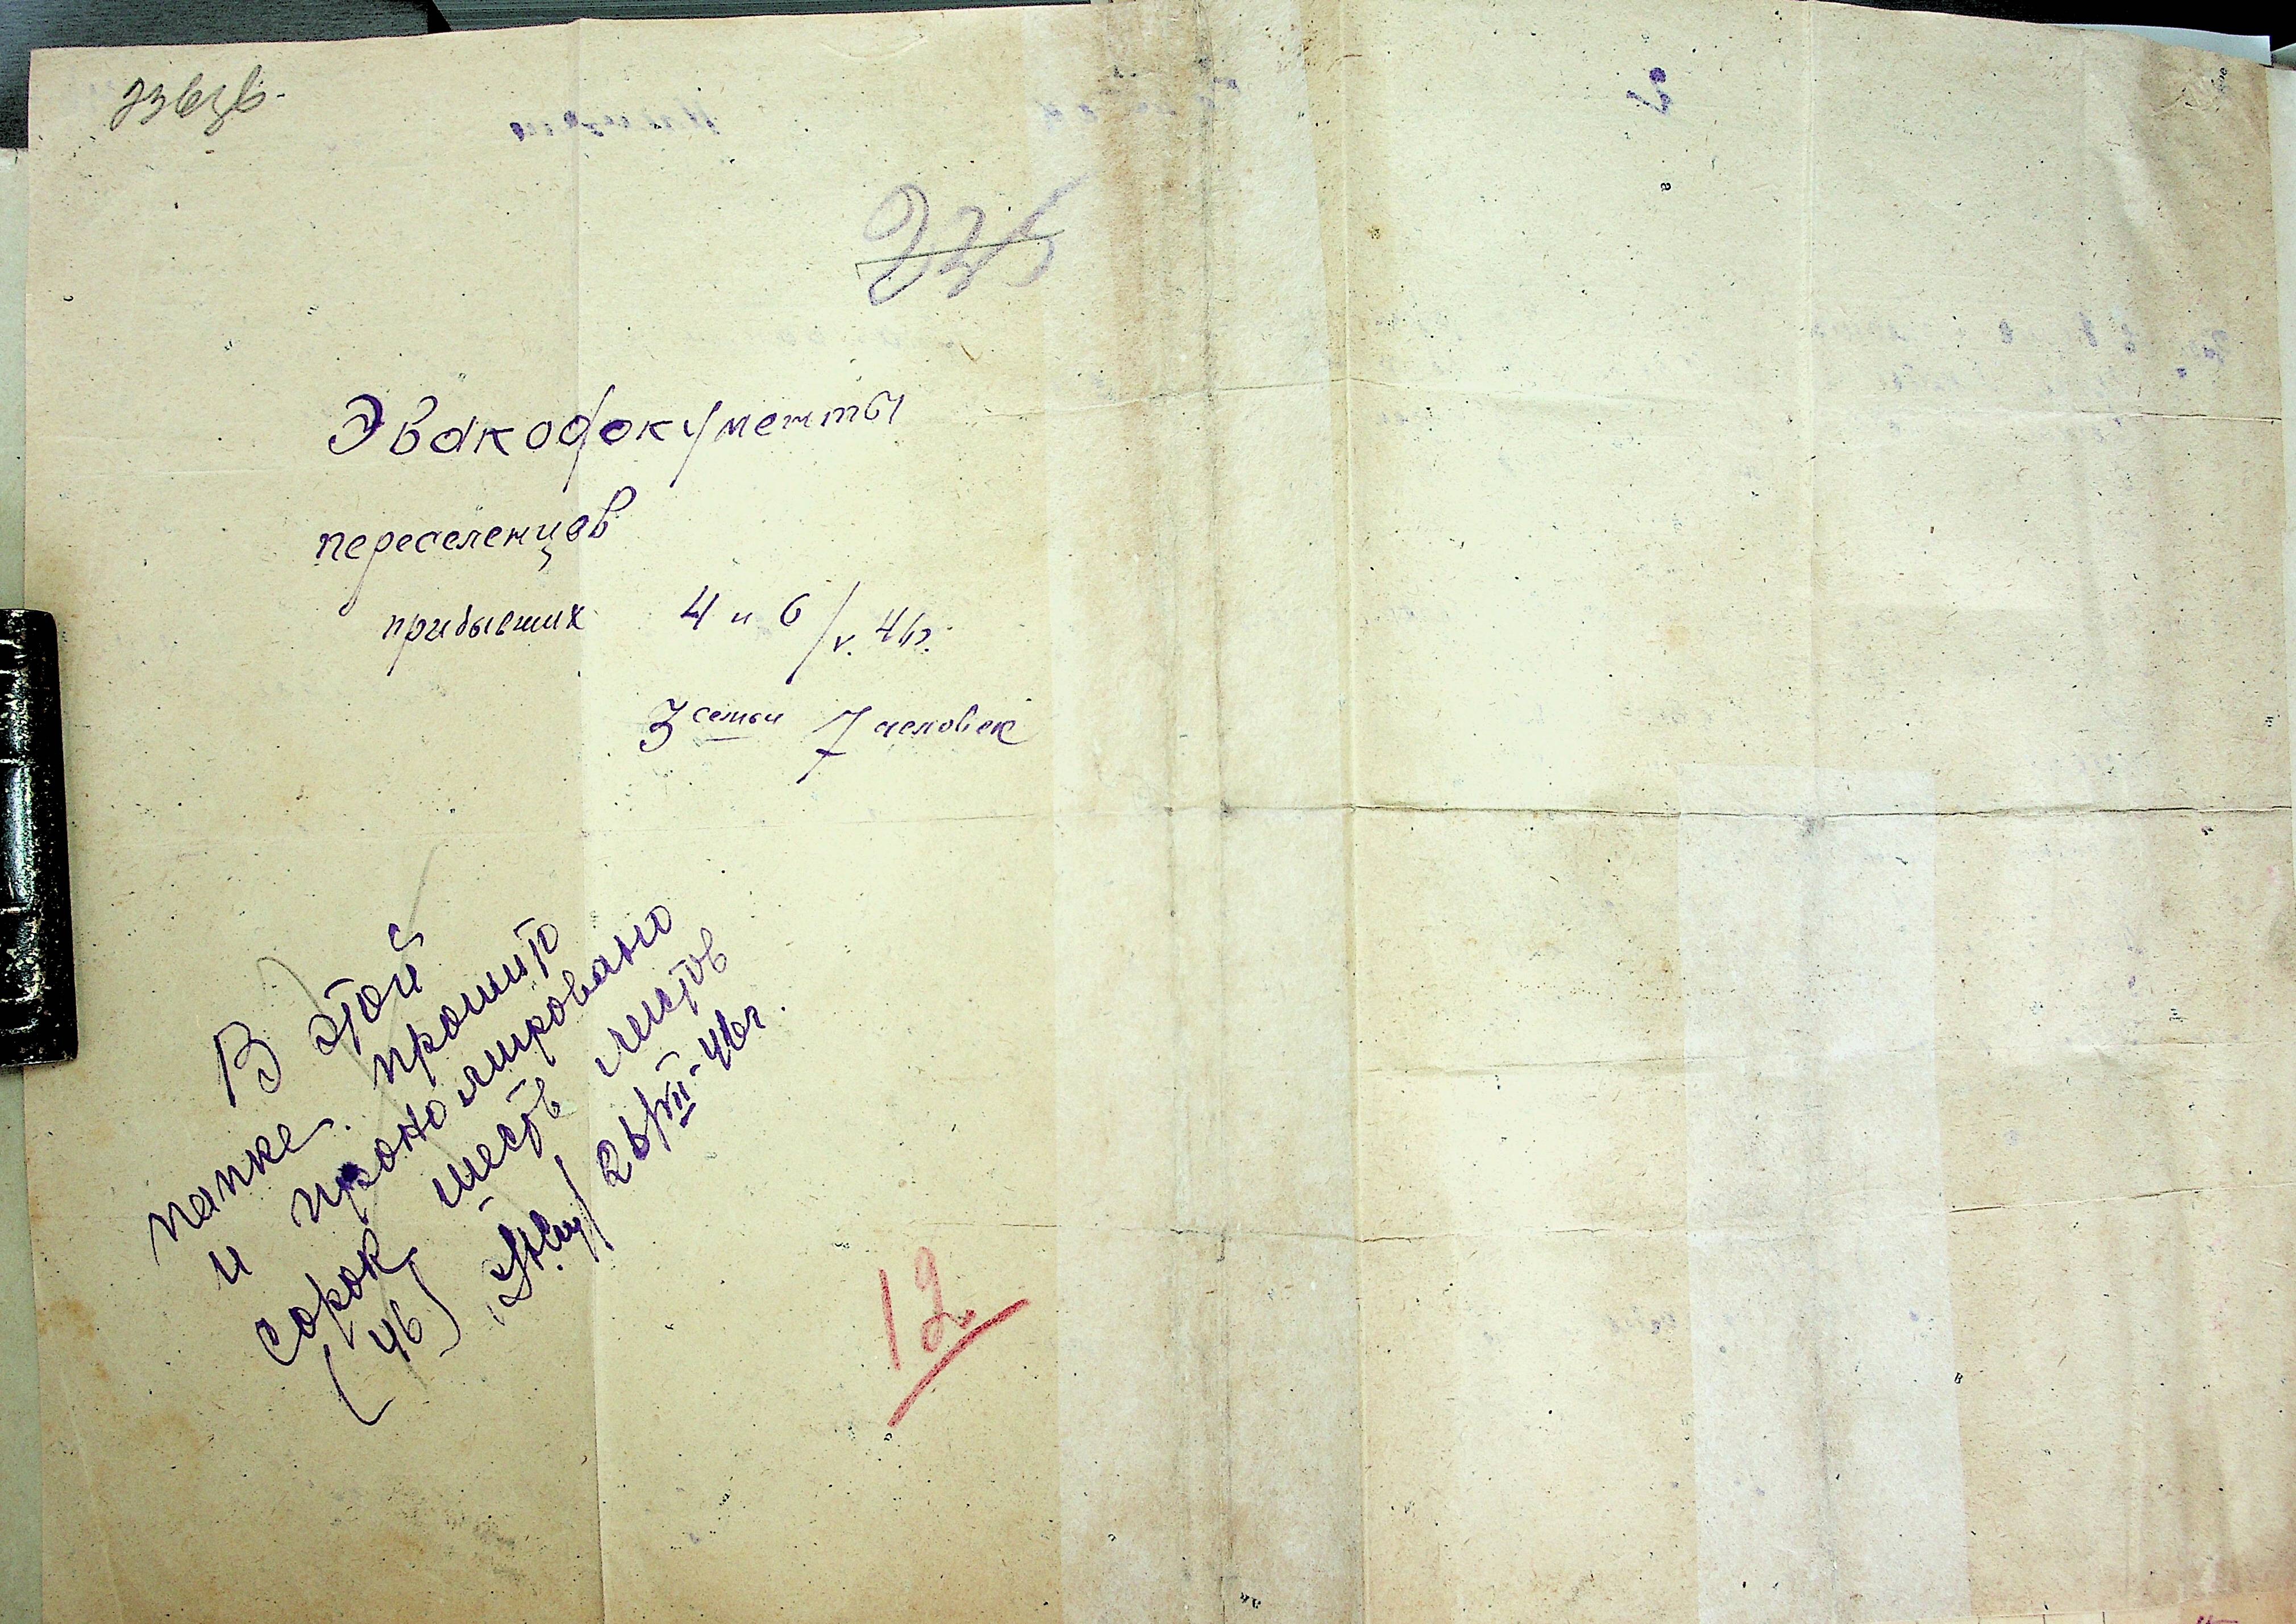 225
Эвакодокументы
переселенцов
прибывших 4 и 6/V. 46г.
3 семьи 7 человек
В этой
папке прошито
и пронолмировано
сорок шесть листов
(46) 26/VII-46г.
12